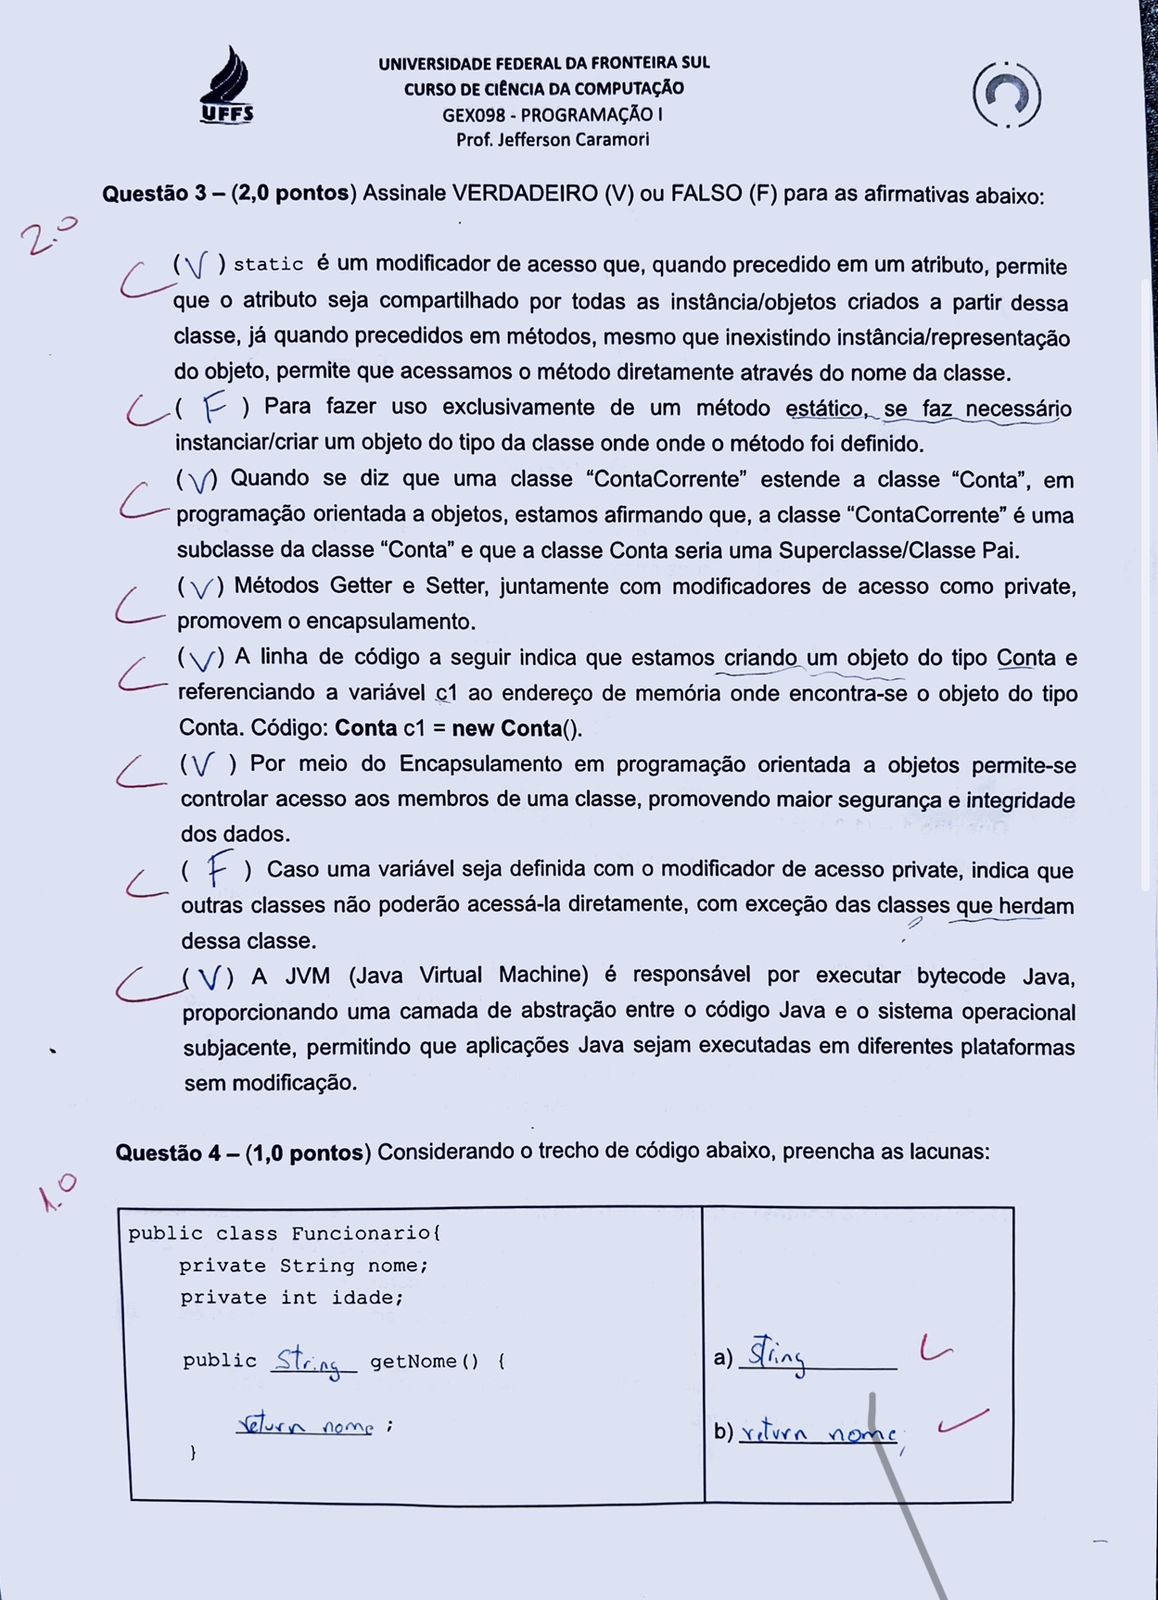 UNIVERSIDADE FEDERAL DA FRONTEIRA SUL
CURSO DE CIÊNCIA DA COMPUTAÇÃO
GEX098 - PROGRAMAÇÃO I
Prof. Jefferson Caramori
UFFS
Questão 3 – (2,0 pontos) Assinale VERDADEIRO (V) ou FALSO (F) para as afirmativas abaixo:
2.0
(V) static é um modificador de acesso que, quando precedido em um atributo, permite
que o atributo seja compartilhado por todas as instância/objetos criados a partir dessa
classe, já quando precedidos em métodos, mesmo que inexistindo instância/representação
do objeto, permite que acessamos o método diretamente através do nome da classe.
(F) Para fazer uso exclusivamente de um método estático, se faz necessário
instanciar/criar um objeto do tipo da classe onde onde o método foi definido.
(V) Quando se diz que uma classe “ContaCorrente” estende a classe “Conta”, em
programação orientada a objetos, estamos afirmando que, a classe “ContaCorrente” é uma
subclasse da classe “Conta” e que a classe Conta seria uma Superclasse/Classe Pai.
(V) Métodos Getter e Setter, juntamente com modificadores de acesso como private,
promovem o encapsulamento.
(V) A linha de código a seguir indica que estamos criando um objeto do tipo Conta e
referenciando a variável c1 ao endereço de memória onde encontra-se o objeto do tipo
Conta. Código: Conta c1 = new Conta().
(V) Por meio do Encapsulamento em programação orientada a objetos permite-se
controlar acesso aos membros de uma classe, promovendo maior segurança e integridade
dos dados.
(F) Caso uma variável seja definida com o modificador de acesso private, indica que
outras classes não poderão acessá-la diretamente, com exceção das classes que herdam
dessa classe.
(V) A JVM (Java Virtual Machine) é responsável por executar bytecode Java,
proporcionando uma camada de abstração entre o código Java e o sistema operacional
subjacente, permitindo que aplicações Java sejam executadas em diferentes plataformas
sem modificação.
Questão 4 – (1,0 pontos) Considerando o trecho de código abaixo, preencha as lacunas:
1.0
public class Funcionario{
private String nome;
private int idade;
public String getNome() {
return nome ;
}
a) String
b) return nome;